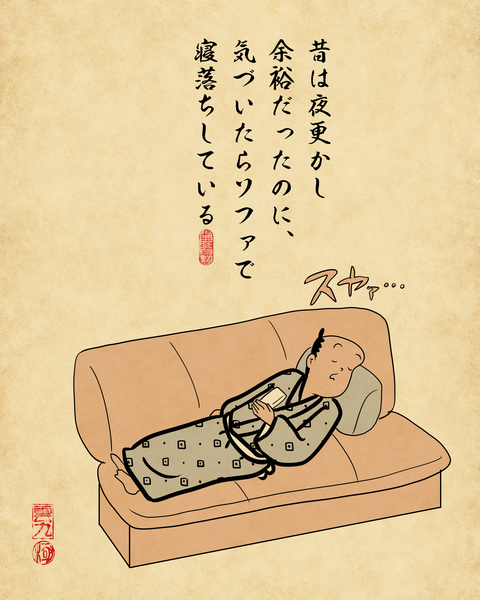 昔は夜更かし
余裕だったのに、
気づいたらソファで
寝落ちしている
スヤァ…